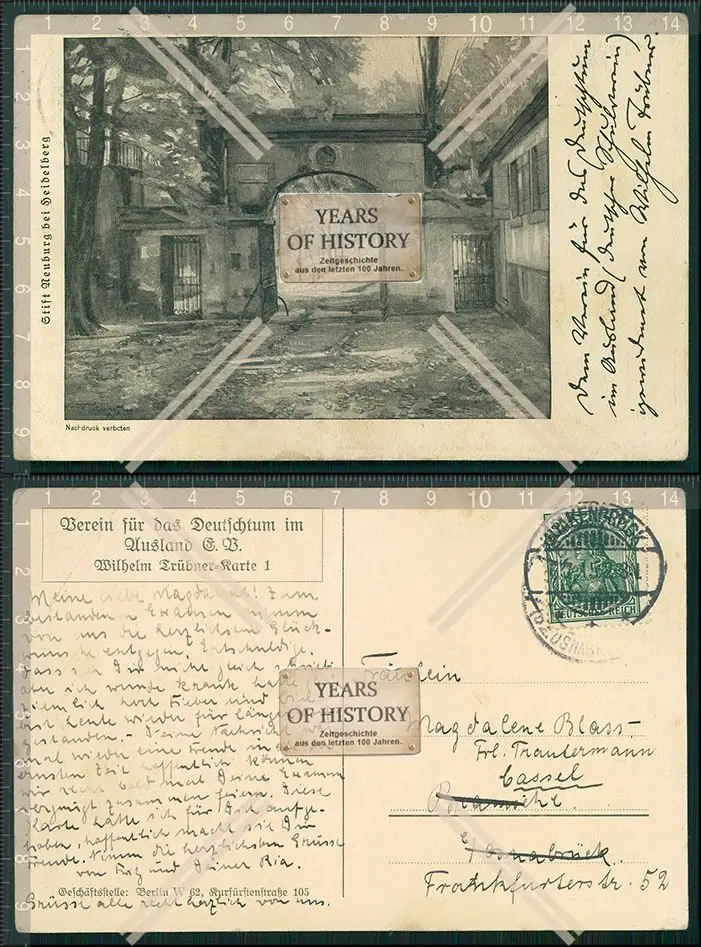 Stift Neuburg bei Heidelberg
YEARS
OF HISTORY
Zeitgeschichte
aus den letzten 100 Jahren.
Dem Verein für das Deutschtum
im Ausland (Deutscher Schulverein)
gewidmet von Wilhelm Trübner.
Nachdruck verboten
Verein für das Deutschtum im
Ausland E. V.
Wilhelm Trübner-Karte 1
Meine liebe Magdalene! Zum
bestandenen Examen nimm
von uns die herzlichsten Glück-
wünsche entgegen. Entschuldige,
dass ich Dir nicht gleich schrieb
aber ich wurde krank hatte
ziemlich hoch Fieber und bin
erst heute wieder für länger
gestanden. - Deine Nachricht
mal wieder eine Freude in
ernsten Zeit hoffentlich können
wir recht bald mal Deine Examen
vergnügt zusammen feiern. Diese
Karte hatte ich für Dich aufge-
haben, hoffentlich macht sie Dir
Freude. Nimm die herzlichsten Grüsse
von Fritz und Deiner Ria.
Geschäftsstelle: Berlin W 62, Kurfürstenstraße 105
Grüsse alle recht herzlich von uns.
DEUTSCHES REICH
Fräulein
YEARS
OF HISTORY
Zeitgeschichte
aus den letzten 100 Jahren.
Magdalene Blass
Frl. Trautermann
Cassel
Bramsche
b/ Osnabrück
Frankfurterstr. 52